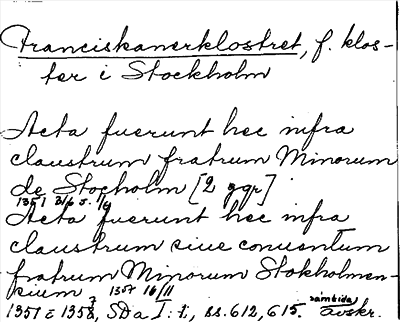 Franciskanerklostret, f. klos-
ter i Stockholm
Acta fuerunt hec infra
claustrum fratrum Minorum
de Stocholm [2 ggr]
1351
Acta fuerunt hec infra
claustrum siue conuentum
fratrum Minorum Stokholmen-
sium 1357 16/11
1351 o 1357, SD a I: 1, ss. 612, 615. samtida avskr.